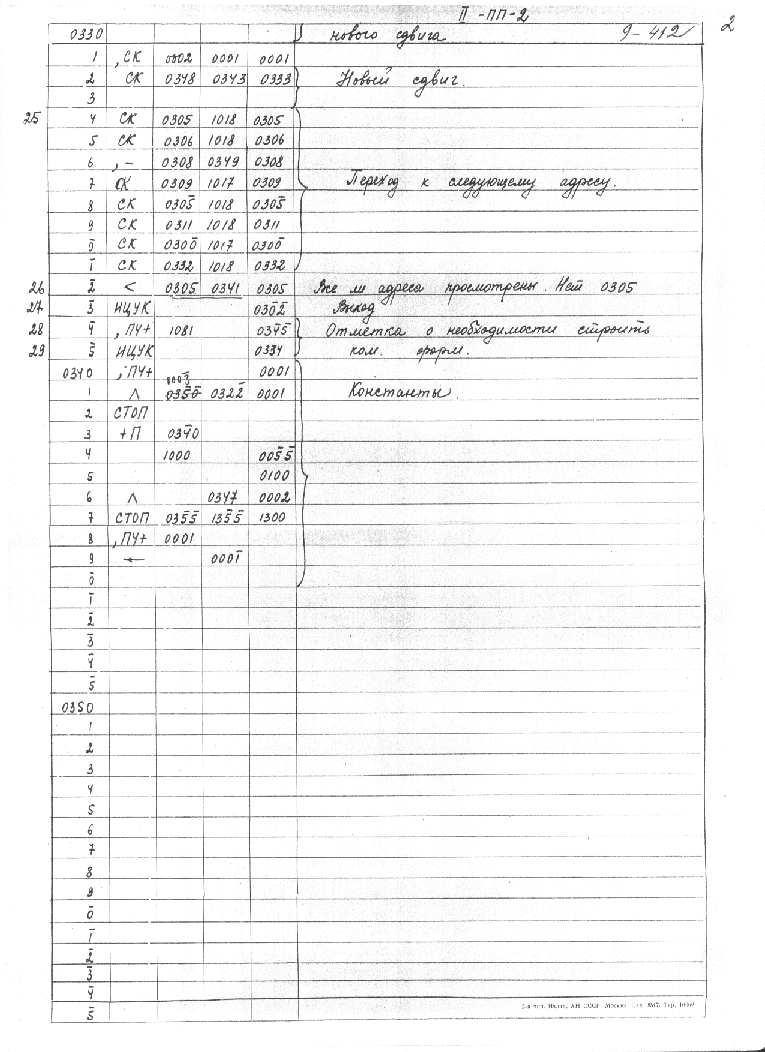 II -ПП-2
0330 нового сдвига 9-412 2
1 ,СК 0002 0001 0001
2 СК 0348 0343 0333 Новый сдвиг.
3
25 4 СК 0305 1018 0305
5 СК 0306 1018 0306
6 ,- 0308 0349 0308
7 СК 0309 1017 0309 Переход к следующему адресу.
8 СК 0305̄ 1018 0305̄
9 СК 0311 1018 0311
0̄ СК 0300̄ 1017 0300̄
1̄ СК 0332 1018 0332
26 2̄ < 0305 0341 0305 Все ли адреса просмотрены. Нет 0305
27 3̄ ИЦУК 0302̄ Выход
28 4̄ ,ПЧ+ 1081 034̄5̄ Отметка о необходимости строить
29 5̄ ИЦУК 0334 ком. форм.
0340 ,ПЧ+ 0001
0003̄
1 Λ 035̄0̄ 0322̄ 0001 Константы.
2 СТОП
3 +П 034̄0
4 1000 005̄5̄
5 0100
6 Λ 0347 0002
7 СТОП 035̄5̄ 135̄5̄ 1300
8 ,ПЧ+ 0001
9 ← 0001̄
0̄
1̄
2̄
3̄
4̄
5̄
0350
1
2
3
4
5
6
7
8
9
0̄
1̄
2̄
3̄
4̄
5̄